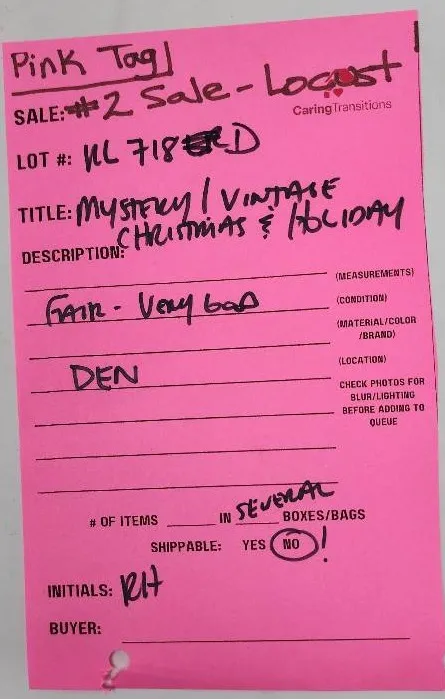 Pink Tag
SALE: #2 Sale - Locust
CaringTransitions
LOT #: KL 718 D
TITLE: MYSTERY / VINTAGE
CHRISTMAS & HOLIDAY
DESCRIPTION:
(MEASUREMENTS)
FAIR - VERY GOOD (CONDITION)
(MATERIAL/COLOR
/BRAND)
DEN (LOCATION)
CHECK PHOTOS FOR
BLUR/LIGHTING
BEFORE ADDING TO
QUEUE
# OF ITEMS IN SEVERAL BOXES/BAGS
SHIPPABLE: YES NO!
INITIALS: RH
BUYER: